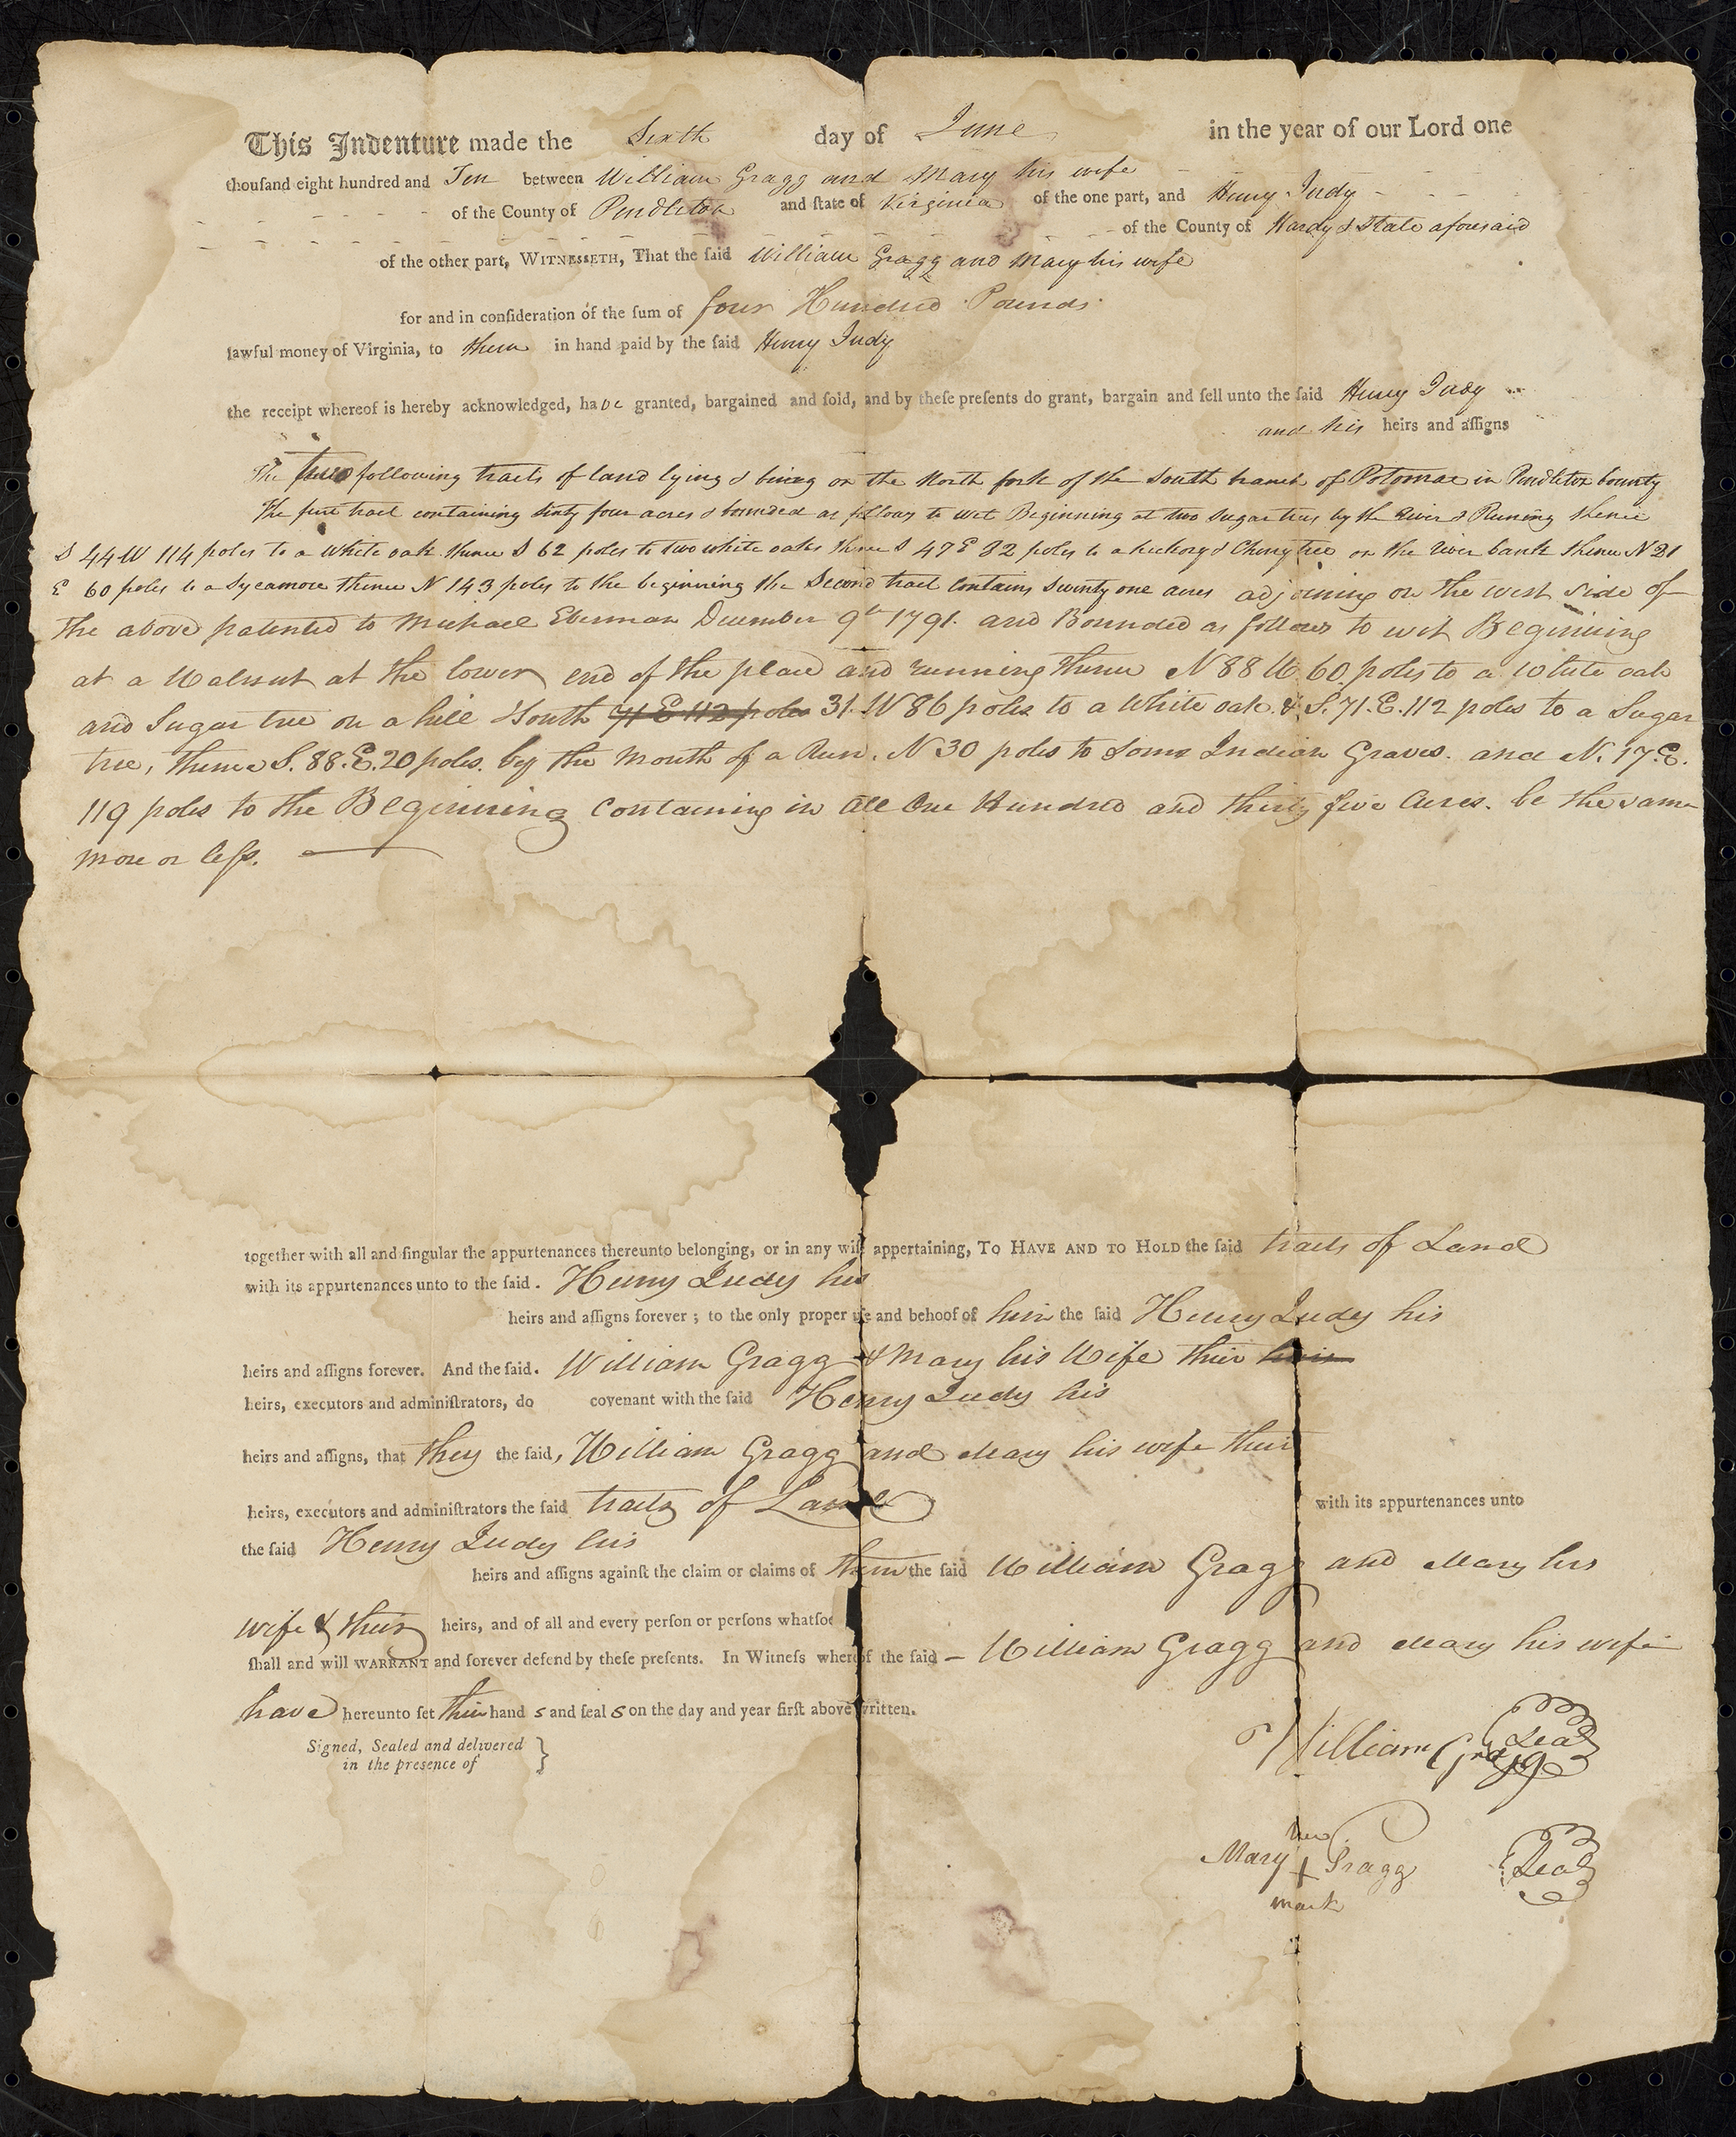 This Indenture made the Sixth day of June in the year of our Lord one
thouſand eight hundred and Ten between William Gragg and Mary his wife
of the County of Pendleton and ſtate of Virginia of the one part, and Henry Judy
of the County of Hardy & State aforesaid
of the other part, WITNESSETH, That the ſaid William Gragg and Mary his wife
for and in conſideration of the ſum of four Hundred Pounds
lawful money of Virginia, to them in hand paid by the ſaid Henry Judy
the receipt whereof is hereby acknowledged, have granted, bargained and ſold, and by theſe preſents do grant, bargain and ſell unto the ſaid Henry Judy
and his heirs and aſſigns
The two following tracts of land lying & being on the North fork of the South branch of Potomac in Pendleton County
The first tract containing sixty four acres & bounded as follows to wit Beginning at two sugar trees by the River & Runing thence
S 44 W 114 poles to a White oak thence S 62 poles to two white oaks thence S 47 E 82 poles to a hickory & Cherry tree on the river bank thence N 21
E 60 poles to a Sycamore thence N 143 poles to the beginning the Second tract contains seventy one acres adjoining on the west side of
the above patented to Michael Eberman December 9th 1791. and Bounded as follows to wit Beginning
at a Walnut at the lower end of the place and running thence N 88 W 60 poles to a white oak
and Sugar tree on a hill South 71 E 112 poles 31. W 86 poles to a White oak. & S. 71. E. 112 poles to a Sugar
tree, thence S. 88. E. 20 poles. by the mouth of a Run. N 30 poles to some Indian Graves. and N. 17. E.
119 poles to the Beginning Containing in all One Hundred and thirty five Acres. be the same
more or leſs.
together with all and ſingular the appurtenances thereunto belonging, or in any wiſe appertaining, TO HAVE AND TO HOLD the ſaid tracts of Land
with its appurtenances unto to the ſaid. Henry Judy his
heirs and aſſigns forever; to the only proper uſe and behoof of him the ſaid Henry Judy his
heirs and aſſigns forever. And the ſaid. William Gragg & Mary his Wife their heirs
heirs, executors and adminiſtrators, do covenant with the ſaid Henry Judy his
heirs and aſſigns, that they the ſaid, William Gragg and Mary his wife their
heirs, executors and adminiſtrators the ſaid tracts of Land with its appurtenances unto
the ſaid Henry Judy his
heirs and aſſigns againſt the claim or claims of them the ſaid William Gragg and Mary his
wife & their heirs, and of all and every perſon or perſons whatſoe
ſhall and will WARRANT and forever defend by theſe preſents. In Witneſs whereof the ſaid – William Gragg and Mary his wife
have hereunto ſet their hand s and ſeal s on the day and year firſt above written.
Signed, Sealed and delivered
in the presence of }
William Gragg Seal
her
Mary + Gragg Seal
mark